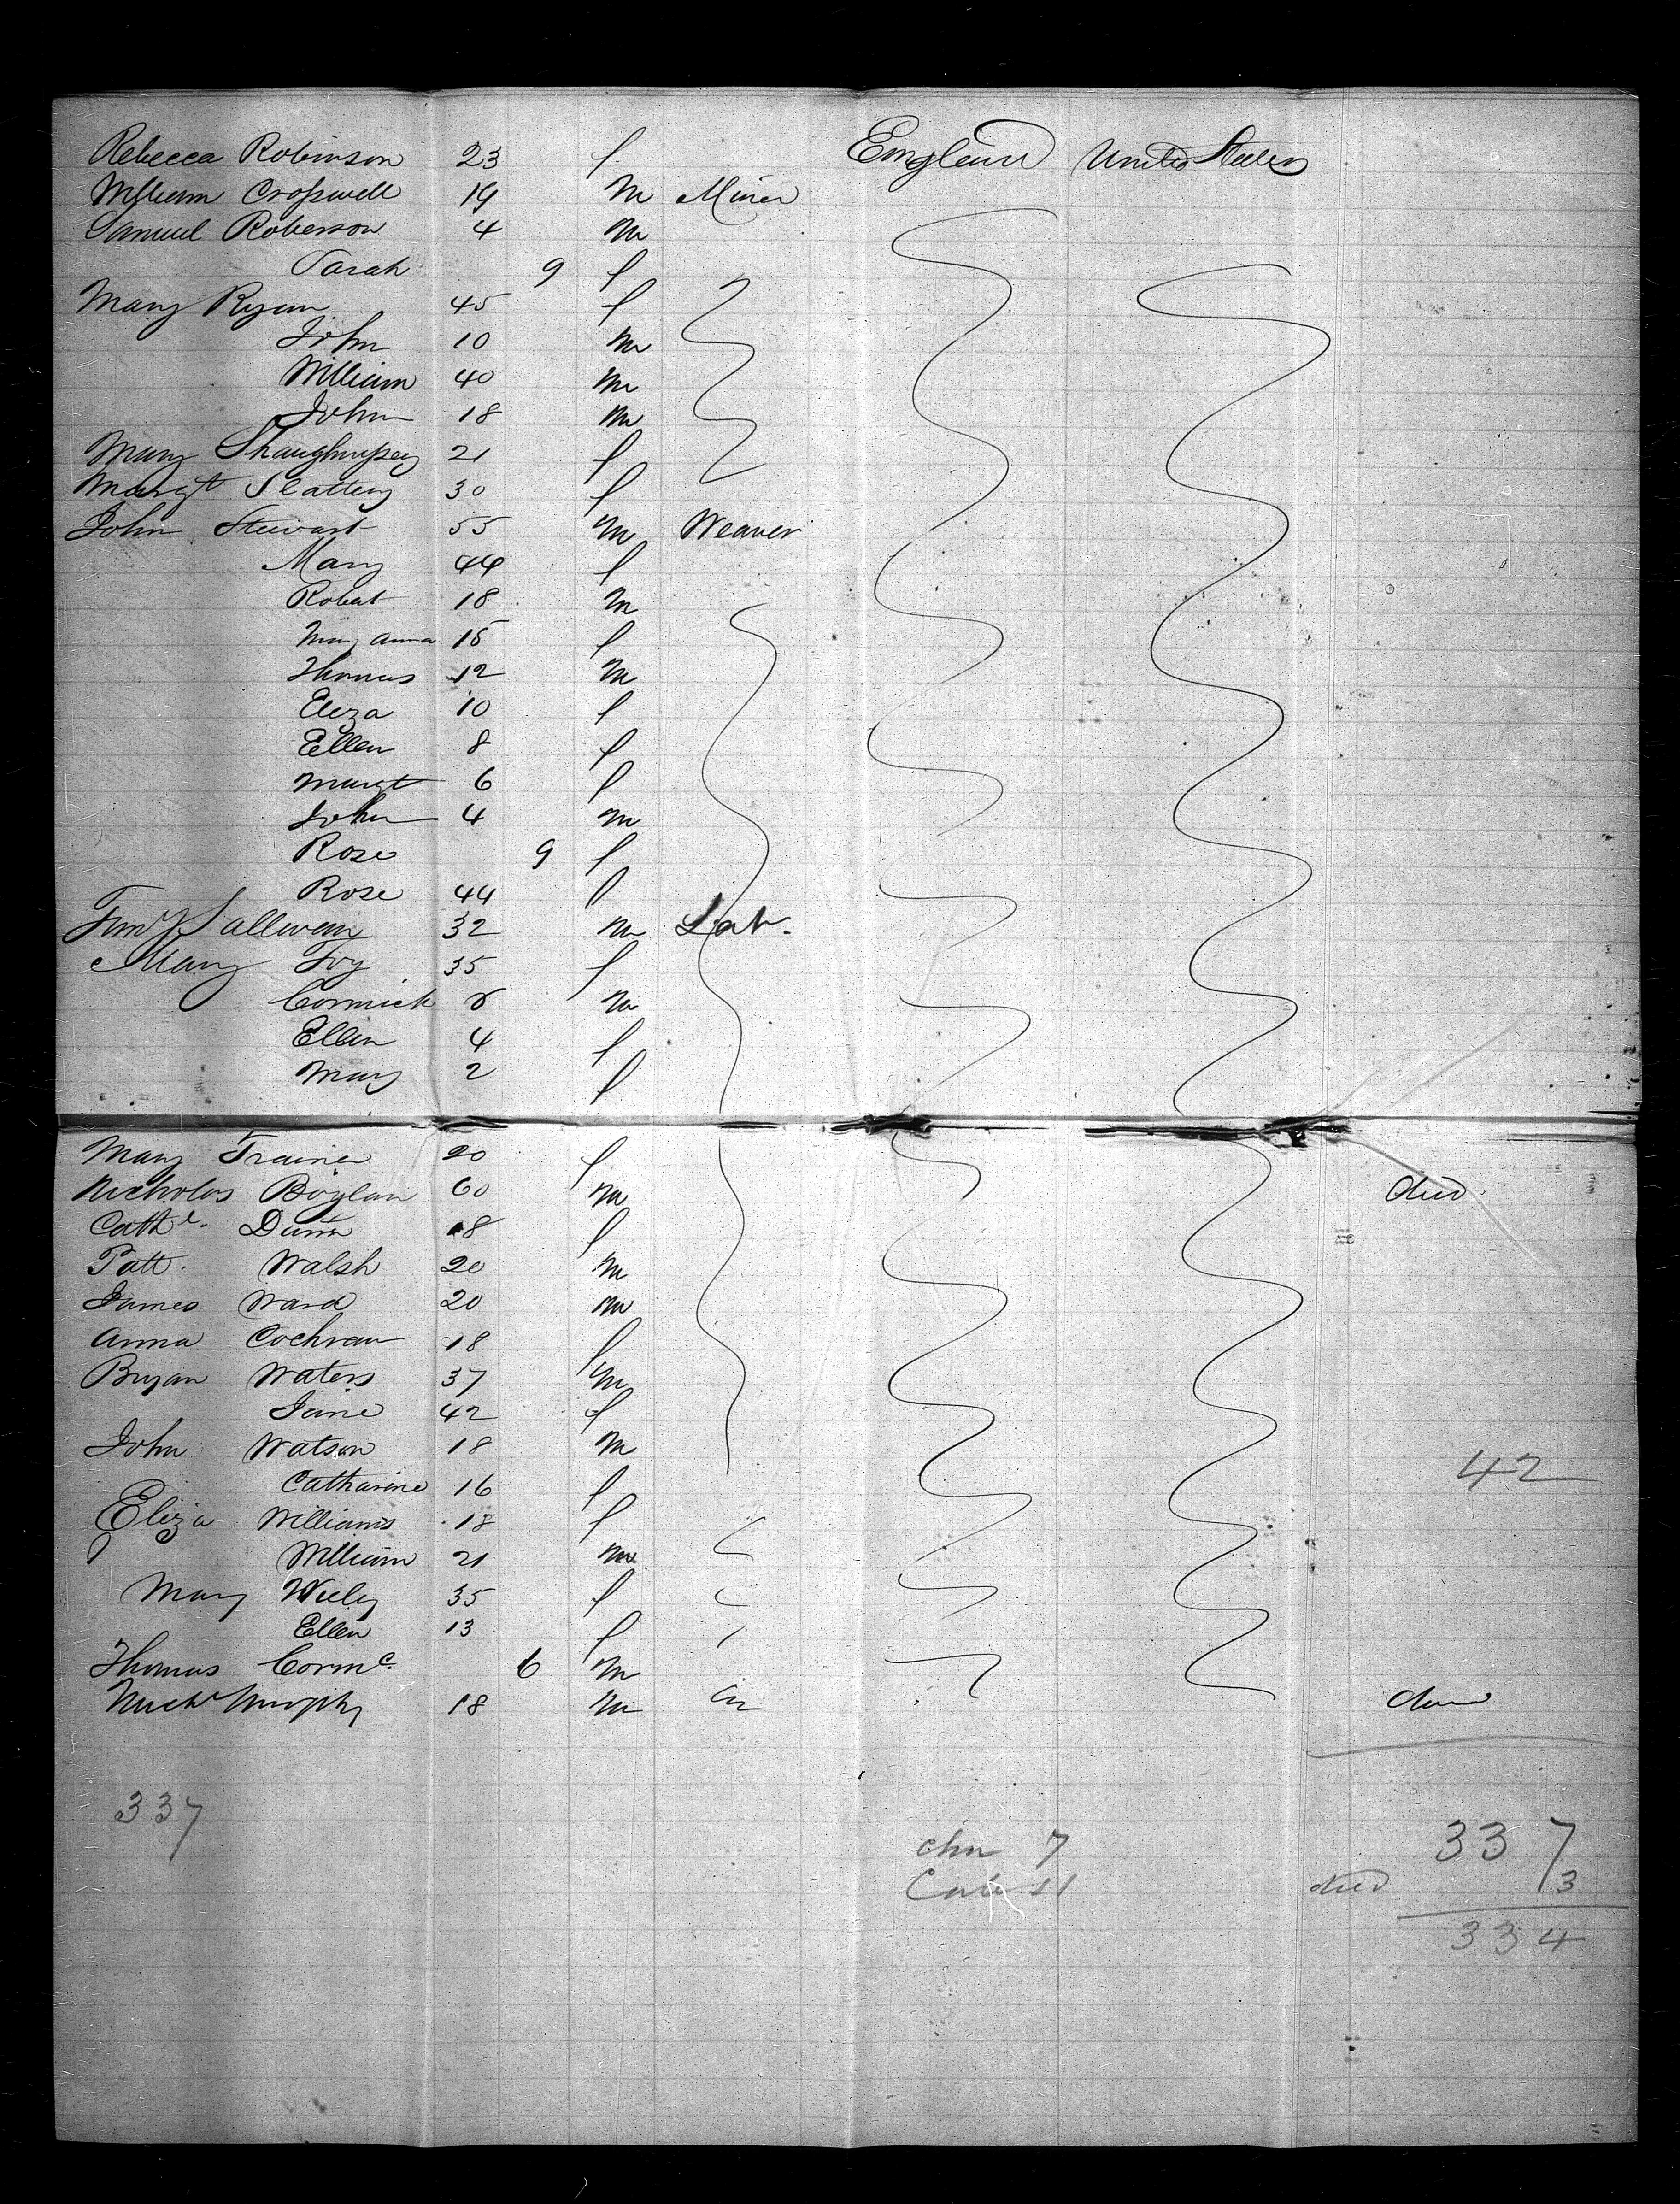 Rebecca Robinson 23 f England United States
William Crosswell 19 m Miner
Samuel Roberson 4 m
Sarah 9 f
Mary Ryan 45 f
John 10 m
William 40 m
John 18 m
Mary Shaughnssey 21 f
Margt Slattery 30 f
John Stewart 55 m Weaver
Mary 44 f
Robert 18 m
Mary Anna 15 f
Thomas 12 m
Eliza 10 f
Ellen 8 f
Margt 6 f
John 4 m
Rose 9 f
Rose 44 f
Timy Sallivan 32 m Lab.
Mary Foy 35 f
Cormick 8 m
Ellen 4 f
Mary 2 f
Mary Trainer 20 f
Nicholas Boylan 60 m died.
Cathe. Dunn 18 f
Patt. Walsh 20 m
James Ward 20 m
Anna Cochran 18 f
Bryan Waters 37 m
Jane 42 f
John Watson 18 m
Catharine 16 f 42
Eliza Williams 18 f
William 21 m
Mary Wiely 35 f
Ellen 13 f
Thomas Cormc. 6 m
Michl Murphy 18 m died
337
chn 7 337
11 died 3
334